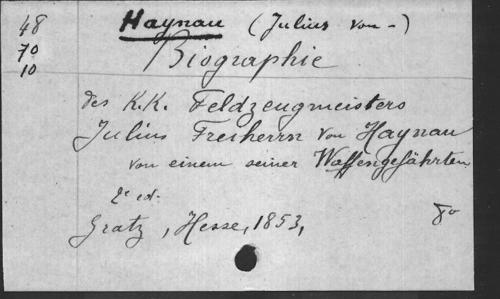 48
70
10
Haynau (Julius von -)
Biographie
des K.K. Feldzeugmeisters
Julius Freiherrn von Haynau
von einem seiner Waffengefährten
2e ed.
Gratz, Hesse, 1853,
8o